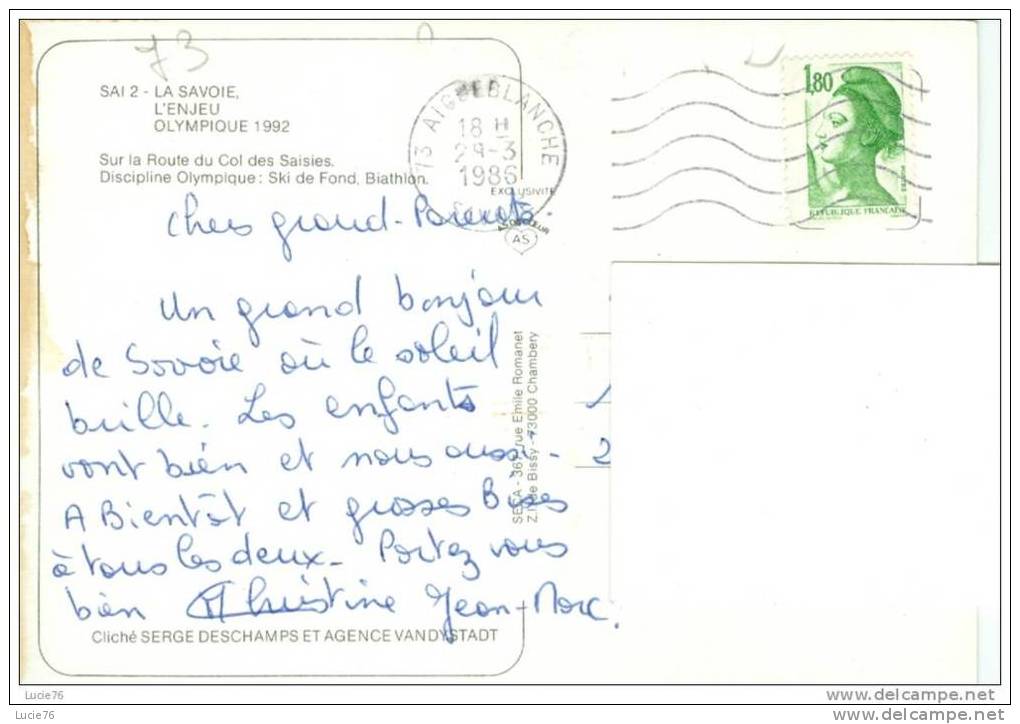 73
SAI 2 - LA SAVOIE,
L'ENJEU
OLYMPIQUE 1992
Sur la Route du Col des Saisies.
Discipline Olympique : Ski de Fond, Biathlon.
73 AIGUEBLANCHE
18 H
29-3
1986
EXCLUSIVITE
AS
1,80
REPUBLIQUE FRANCAISE
Chers grand-Parents.
Un grand bonjour
de Savoie où le soleil
brille. Les enfants
vont bien et nous aussi-
A Bientôt et grosses Bises
à tous les deux. Portez vous
bien Christine Jean-Marc.
rue Emile Romanet
Z.I. de Bissy - 73000 Chambery
Cliché SERGE DESCHAMPS ET AGENCE VANDYSTADT
Lucie76
Lucie76
delcampe.net
delcampe.net